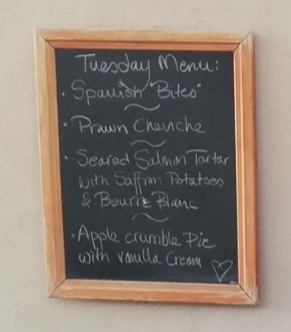 Tuesday Menu:
• Spanish "Bites"
~
• Prawn Cheviche
~
• Seared Salmon Tartar
with Saffron Potatoes
& Beurre Blanc
~
• Apple crumble Pie
with vanilla Cream ♡